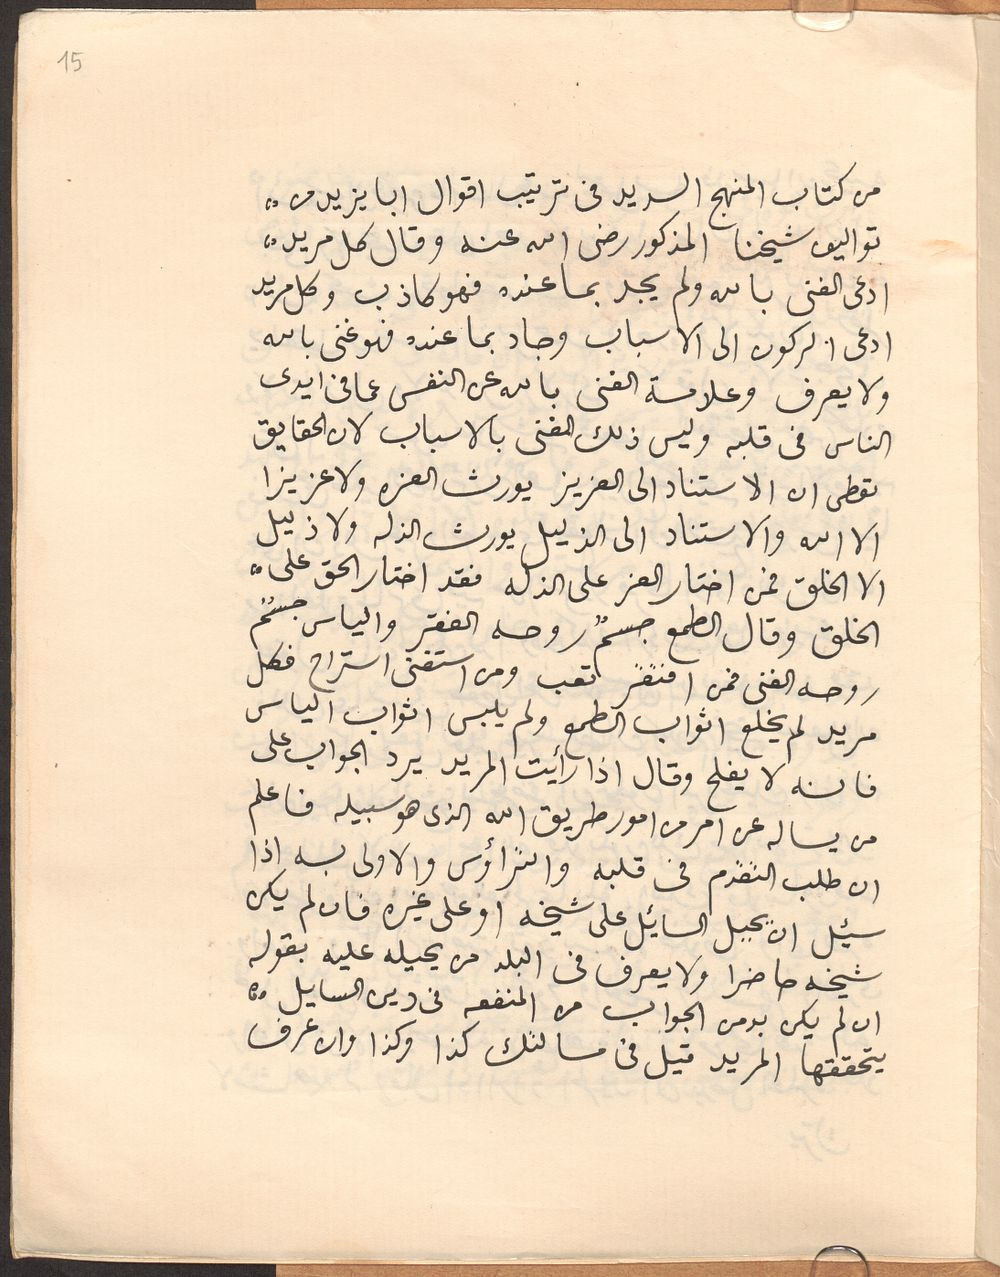 15
من كتاب المنهج السديد فى ترتيب اقوال ابا يزيد من
تواليف شيخنا المذكور رضى الله عنه وقال كل مريد
ادعى الغنى بالله ولم يجد بما عنده فهو كاذب وكل مريد
ادعى الركون الى الاسباب وجاد بما عنده فهو غنى بالله
ولا يعرف وعلامة الغنى بالله عن النفس عما فى ايدى
الناس فى قلبه وليس ذلك الغنى بالاسباب لان الحقايق
تعطى ان الاستناد الى العزيز يورث العزه ولا عزيزا
الا الله والاستناد الى الذليل يورث الذله ولا ذليل
الا الخلق فمن اختار العز على الذله فقد اختار الحق على
الخلق وقال الطمع جسمٌ روحه الفقر والياس جسمٌ
روحه الغنى فمن افتقر تعب ومن استغنى استراح فكل
مريد لم يخلع اثواب الطمع ولم يلبس اثواب الياس
فانه لا يفلح وقال اذا رأيت المريد يرد الجواب على
من يساله عن امر من امور طريق الله الذى هو سبيله فاعلم
ان طلب التقدم فى قلبه والترأوس والاولى به اذا
سيئل ان يحيل السايئل على شيخه او على غيره فان لم يكن
شيخه حاضرا ولا يعرف فى البلد من يحيله عليه بقوله
ان لم يكن بد من الجواب من المنفعه فى دين السايل
يتحققها المريد قيل فى مسالتك كذا وكذا وان عرف